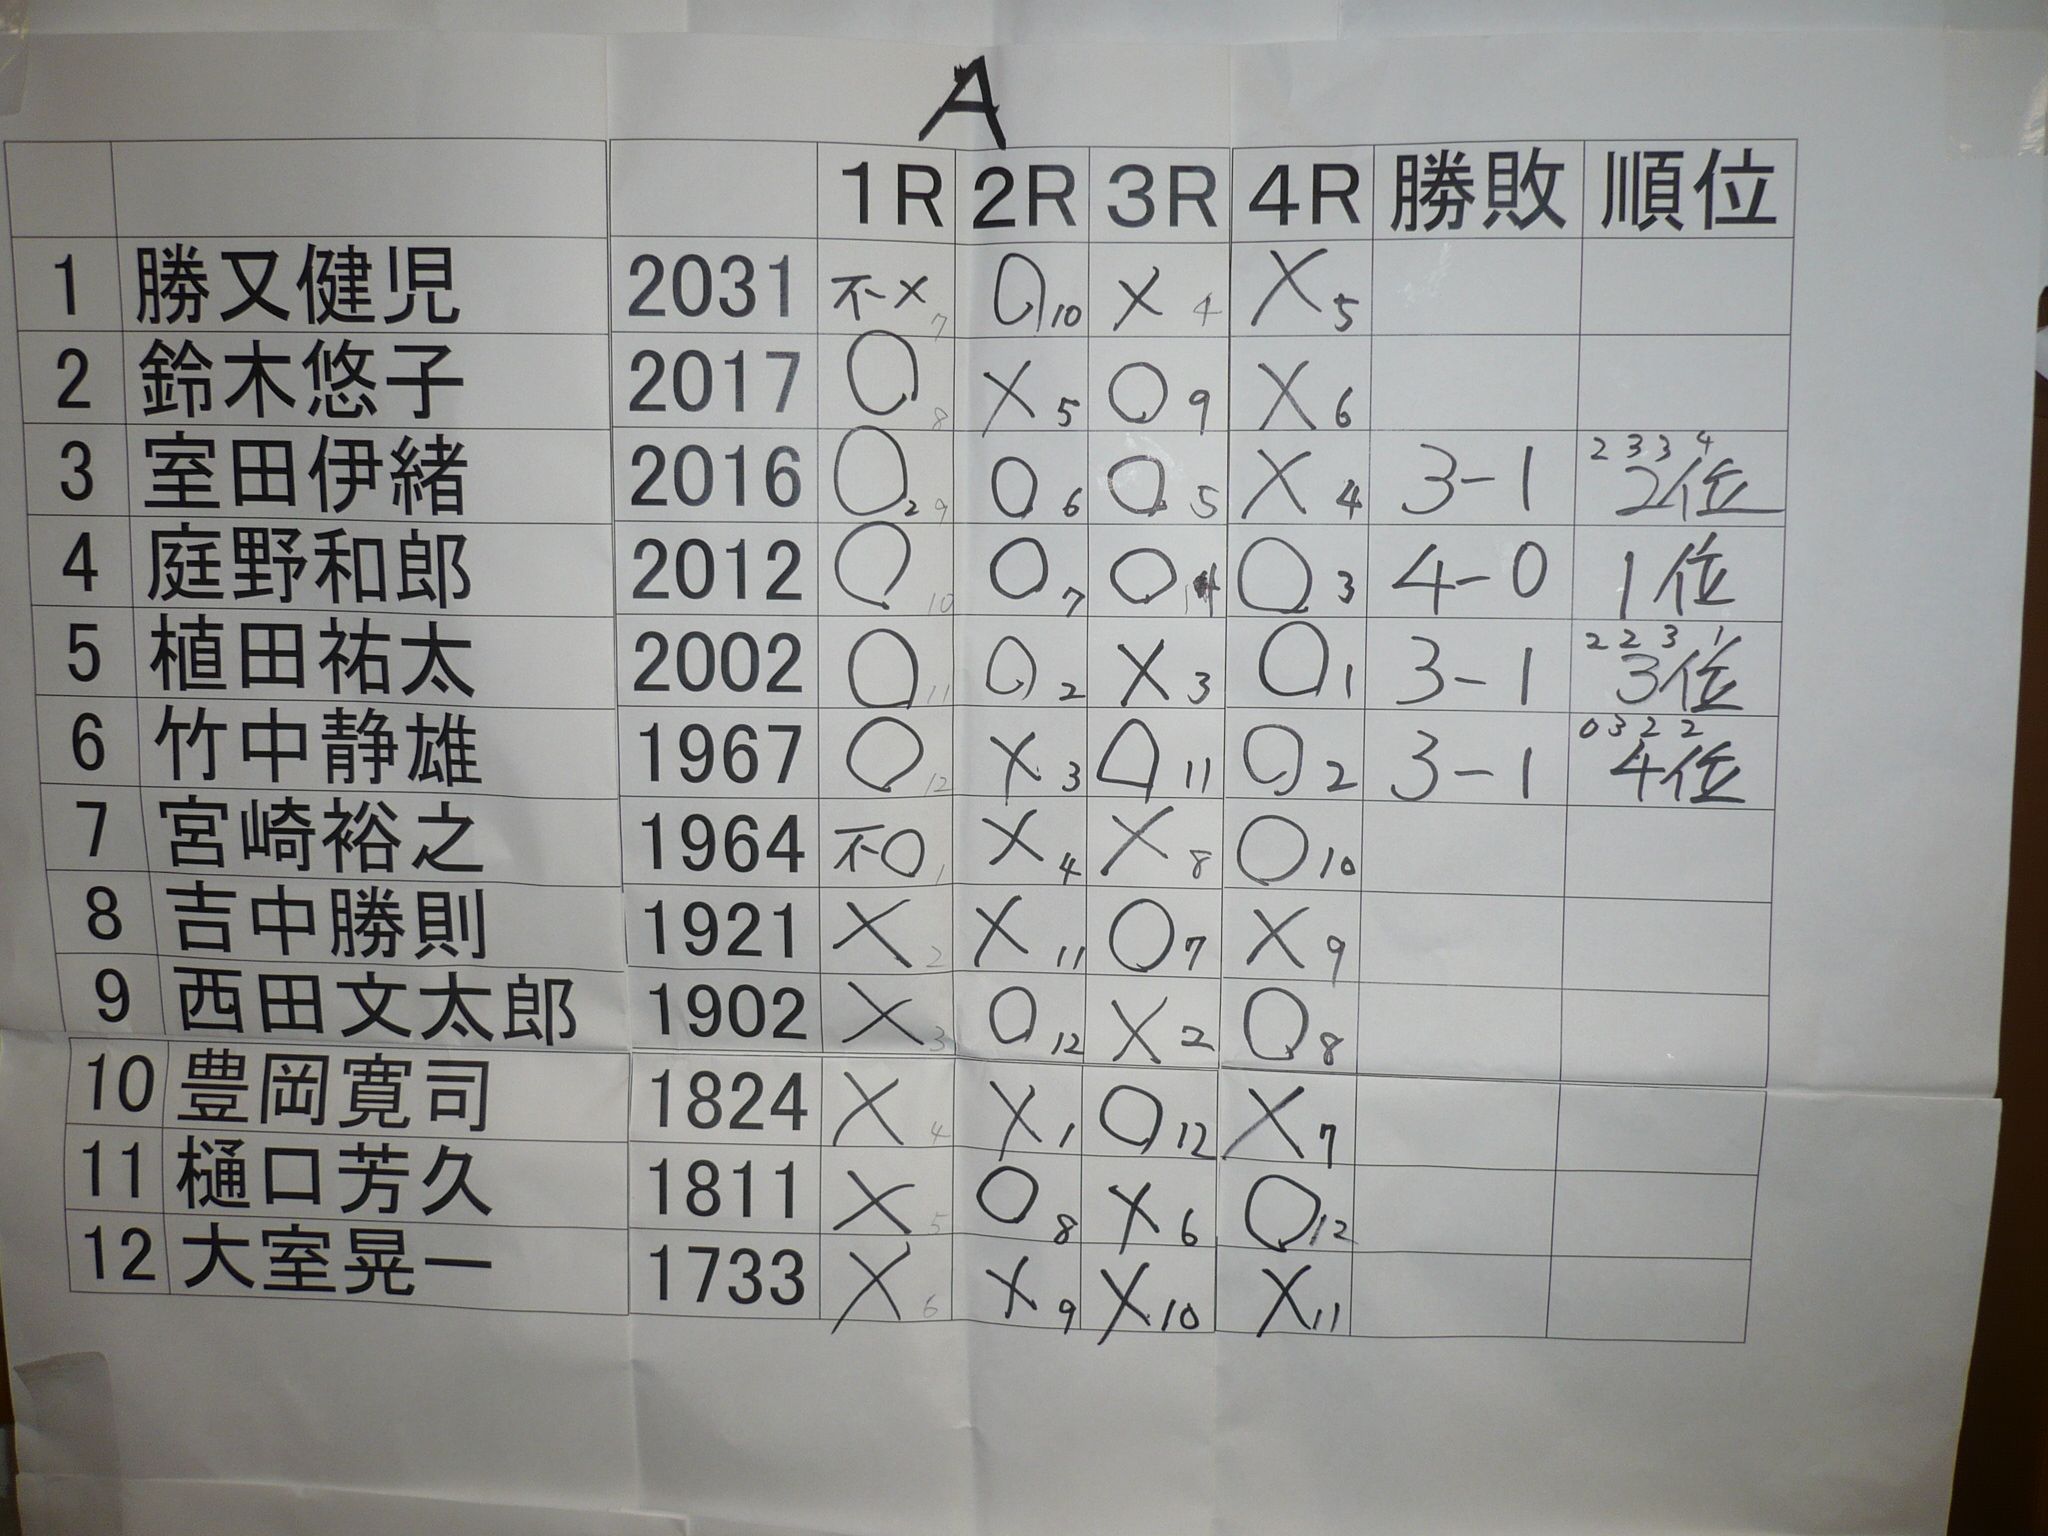 A
1R 2R 3R 4R 勝敗 順位
1 勝又健児 2031 不×7 ○10 ×4 ×5
2 鈴木悠子 2017 ○8 ×5 ○9 ×6
3 室田伊緒 2016 ○29 ○6 ○5 ×4 3-1 2334 2位
4 庭野和郎 2012 ○10 ○7 ○ ○3 4-0 1位
5 植田祐太 2002 ○11 ○2 ×3 ○1 3-1 2231 3位
6 竹中静雄 1967 ○12 ×3 ○11 ○2 3-1 0322 4位
7 宮崎裕之 1964 不○1 ×4 ×8 ○10
8 吉中勝則 1921 ×2 ×11 ○7 ×9
9 西田文太郎 1902 ×3 ○12 ×2 ○8
10 豊岡寛司 1824 ×4 ×1 ○12 ×7
11 樋口芳久 1811 ×5 ○8 ×6 ○12
12 大室晃一 1733 ×6 ×9 ×10 ×11